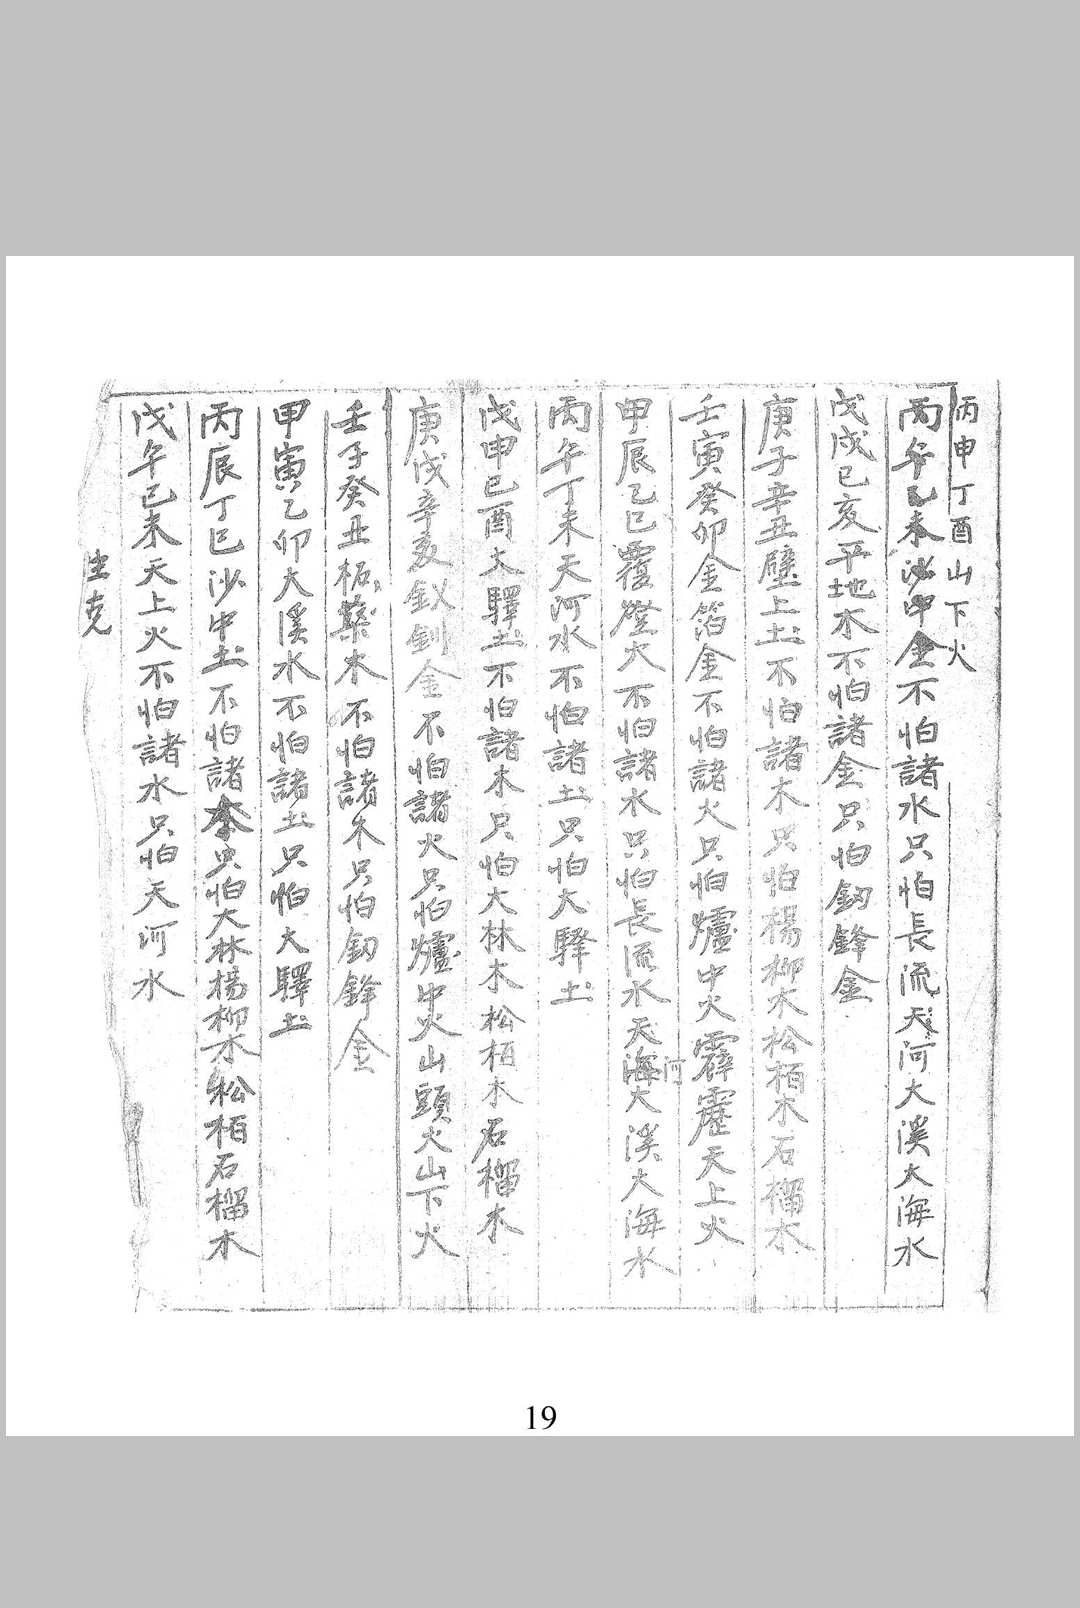 丙申丁酉山下火
丙午乙未沙中金不怕諸水只怕長流天河大溪大海水
戊戌己亥平地木不怕諸金只怕釼鋒金
庚子辛丑壁上土不怕諸木只怕楊柳木松栢木石榴木
壬寅癸卯金箔金不怕諸火只怕爐中火霹靂天上火
甲辰乙巳覆燈火不怕諸水只怕長流水天河大溪大海水
丙午丁未天河水不怕諸土只怕大驛土
戊申己酉大驛土不怕諸木只怕大林木松栢木石榴木
庚戌辛亥釵釧金不怕諸火只怕爐中火山頭火山下火
壬子癸丑柘木不怕諸木只怕釼鋒金
甲寅乙卯大溪水不怕諸土只怕大驛土
丙辰丁巳沙中土不怕諸木只怕大林楊柳木松栢石榴木
戊午己未天上火不怕諸水只怕天河水
生克
19